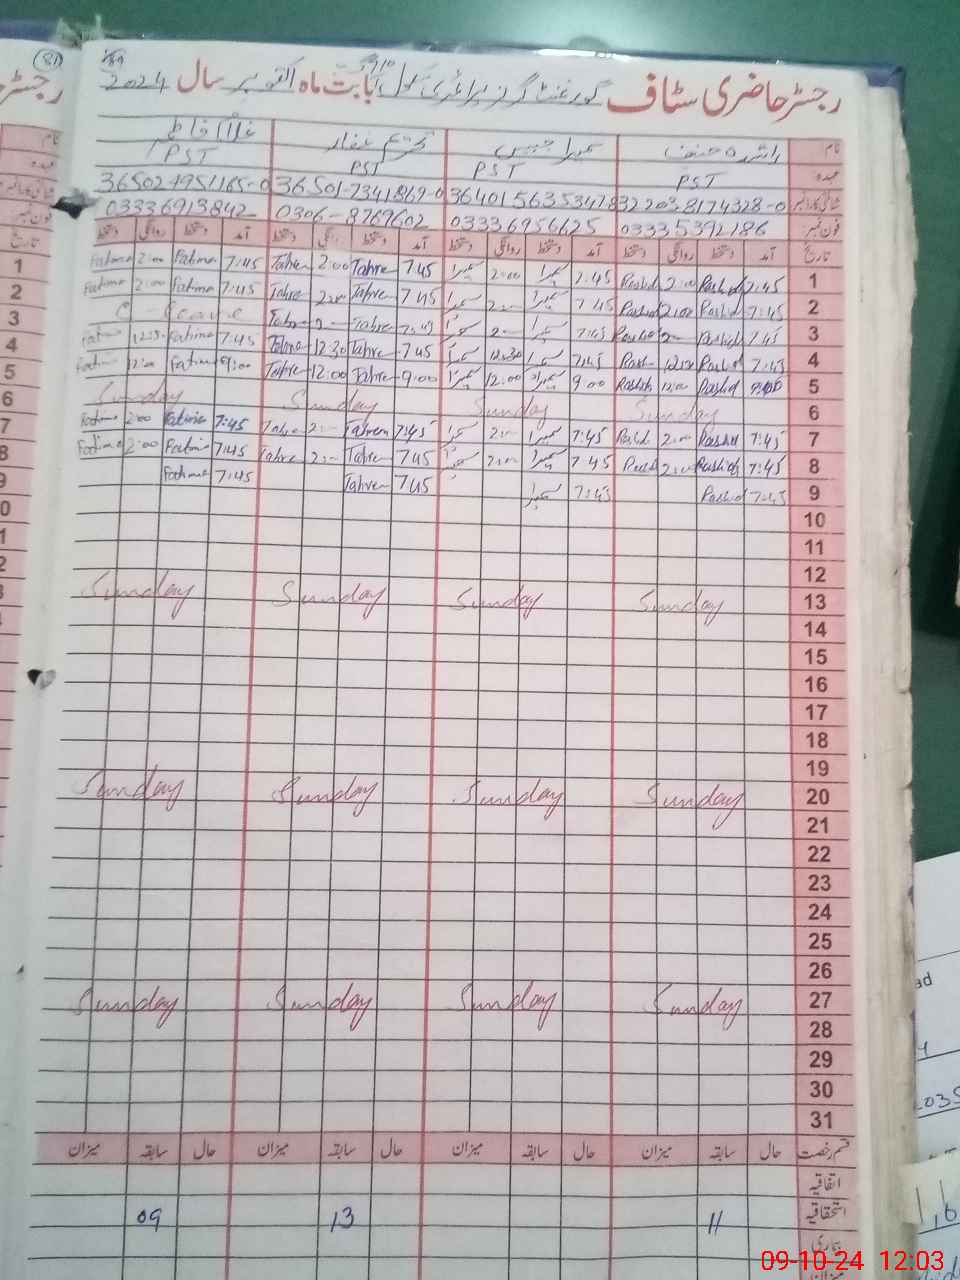 رجسٹر حاضری سٹاف گورنمنٹ گرلز پرائمری سکول بابت ماہ اکتوبر سال 2024
نام راشدہ حنیف سمیرا جبیں تحریم غفار
عہدہ PST PST PST PST
32203 8174328-0 36401 5635347 36501-7341869-0 365024951165-0
فون نمبر 03335392186 03336956625 0306-8769602 03336913842
تاریخ آمد دستخط روانگی دستخط آمد دستخط روانگی دستخط آمد دستخط روانگی دستخط آمد دستخط روانگی دستخط
1 7:45 Rashid 2:00 Rashid 7:45 سمیرا 2:00 سمیرا 7:45 Tahre 2:00 Tahre 7:45 Fatima 2:00 Fatima
2 7:45 Rashid 2:00 Rashid 7:45 سمیرا 2:00 سمیرا 7:45 Tahre 2:00 Tahre 7:45 Fatima 2:00 Fatima
3 7:45 Rashid سمیرا 7:45 سمیرا 7:45 Tahre Tahre C-Leave
4 7:45 Rashid 7:45 سمیرا 12:30 سمیرا 7:45 Tahre 12:30 Tahre 7:45 Fatima
5 Rashid 12:00 Rashid 9:00 سمیرا 12:00 سمیرا 9:00 Tahre 12:00 Tahre 9:00 Fatima 12:00 Fatima
6 Sunday Sunday Sunday Sunday
7 7:45 Rashid 2:00 Rashid 7:45 سمیرا 2:00 سمیرا 7:45 Tahrem 2:00 Tahre 7:45 Fatima 2:00 Fatima
8 7:45 Rashid 2:00 Rashid 7:45 سمیرا 2:00 سمیرا 7:45 Tahre 2:00 Tahre 7:45 Fatima 2:00 Fatima
9 7:45 Rashid 7:45 سمیرا 7:45 Tahre 7:45 Fatima
10
11
12
13 Sunday Sunday Sunday Sunday
14
15
16
17
18
19
20 Sunday Sunday Sunday Sunday
21
22
23
24
25
26
27 Sunday Sunday Sunday Sunday
28
29
30
31
قسم رخصت حال سابقہ میزان حال سابقہ میزان حال سابقہ میزان حال سابقہ میزان
اتفاقیہ
استحقاقیہ 11 13 09
بیماری
میزان
09-10-24 12:03